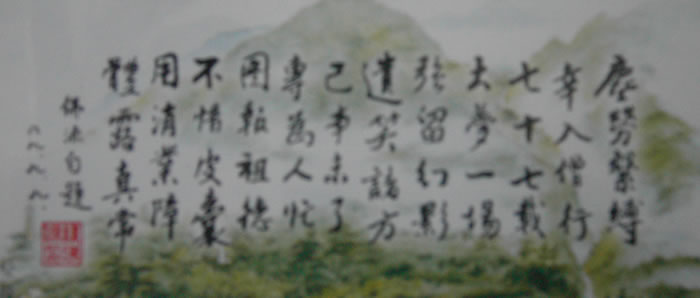 塵勞繫縛
幸入僧行
七十七載
大夢一場
強留幻影
遺笑諸方
己事未了
專為人忙
用報祖德
不惜皮囊
用消業障
體露真常
佛源自題
一九九八